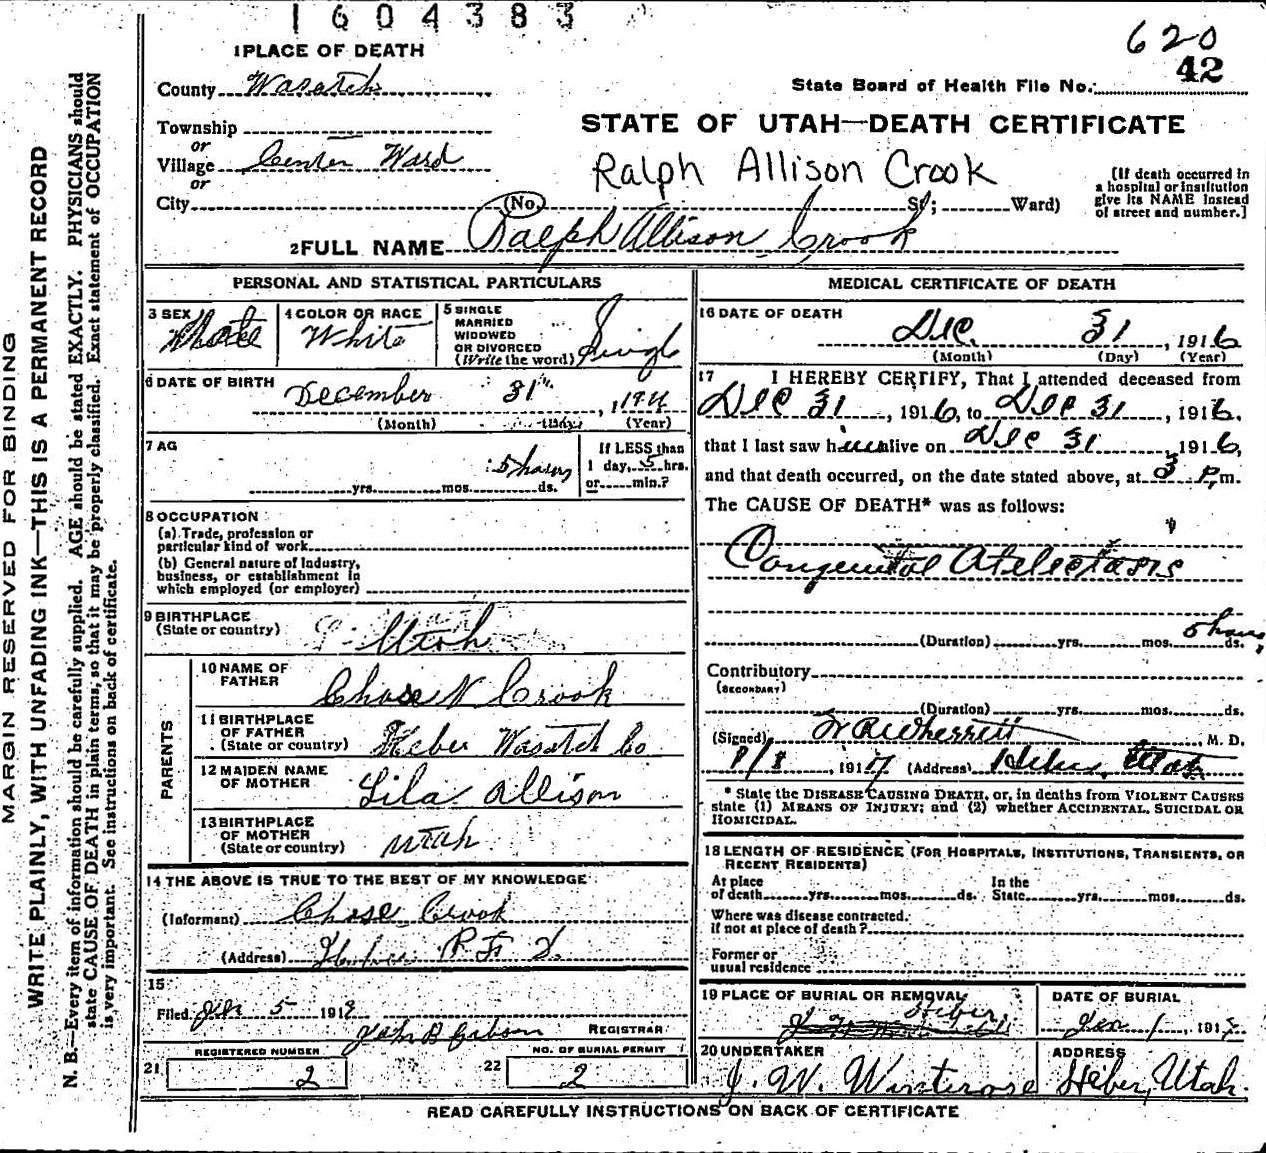 1604383
620
42
1 PLACE OF DEATH
County Wasatch
State Board of Health File No.
Township
or
Village Center Ward
or
City
STATE OF UTAH—DEATH CERTIFICATE
Ralph Allison Crook
(No. St; Ward)
[If death occurred in
a hospital or institution
give its NAME instead
of street and number.]
2 FULL NAME Ralph Allison Crook
PERSONAL AND STATISTICAL PARTICULARS
3 SEX Male
4 COLOR OR RACE White
5 SINGLE
MARRIED
WIDOWED
OR DIVORCED
(Write the word) Single
6 DATE OF BIRTH
December 31, 1
(Month) (Day) (Year)
7 AG
5 hours
yrs. mos. ds.
If LESS than
1 day, 5 hrs.
or min.?
8 OCCUPATION
(a) Trade, profession or
particular kind of work
(b) General nature of industry,
business, or establishment in
which employed (or employer)
9 BIRTHPLACE
(State or country) Utah
PARENTS
10 NAME OF
FATHER Chase N Crook
11 BIRTHPLACE
OF FATHER
(State or country) Heber Wasatch Co
12 MAIDEN NAME
OF MOTHER Lila Allison
13 BIRTHPLACE
OF MOTHER
(State or country) Utah
14 THE ABOVE IS TRUE TO THE BEST OF MY KNOWLEDGE
(Informant) Chase Crook
(Address) Heber R F D.
15
Filed Jan 5 191
John B Gibson REGISTRAR
21 REGISTERED NUMBER
2
22 NO. OF BURIAL PERMIT
2
MEDICAL CERTIFICATE OF DEATH
16 DATE OF DEATH
Dec. 31, 1916
(Month) (Day) (Year)
17 I HEREBY CERTIFY, That I attended deceased from
Dec 31, 1916, to Dec 31, 1916.
that I last saw him alive on Dec 31 1916,
and that death occurred, on the date stated above, at 3 P.m.
The CAUSE OF DEATH* was as follows:
Congenital Atelectasis
5 hours
(Duration) yrs. mos. ds.
Contributory
(SECONDARY)
(Duration) yrs. mos. ds.
(Signed) W R Wherritt, M. D.
1/1, 1917 (Address) Heber, Utah
* State the DISEASE CAUSING DEATH, or, in deaths from VIOLENT CAUSES
state (1) MEANS OF INJURY; and (2) whether ACCIDENTAL, SUICIDAL OR
HOMICIDAL.
18 LENGTH OF RESIDENCE (FOR HOSPITALS, INSTITUTIONS, TRANSIENTS, OR
RECENT RESIDENTS)
At place
of death yrs. mos. ds.
In the
State yrs. mos. ds.
Where was disease contracted.
if not at place of death?
Former or
usual residence
19 PLACE OF BURIAL OR REMOVAL
Heber,
DATE OF BURIAL
Jan 1, 191
20 UNDERTAKER
J. W. Winterose
ADDRESS
Heber, Utah.
READ CAREFULLY INSTRUCTIONS ON BACK OF CERTIFICATE
MARGIN RESERVED FOR BINDING
WRITE PLAINLY, WITH UNFADING INK—THIS IS A PERMANENT RECORD
N. B.—Every item of information should be carefully supplied. AGE should be stated EXACTLY. PHYSICIANS should
state CAUSE OF DEATH in plain terms, so that it may be properly classified. Exact statement of OCCUPATION
is very important. See instructions on back of certificate.